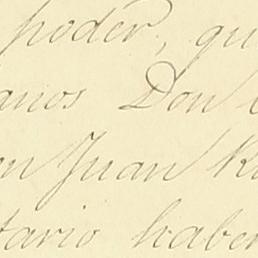 poder, qu
anos Don
on Juan R
tario haber